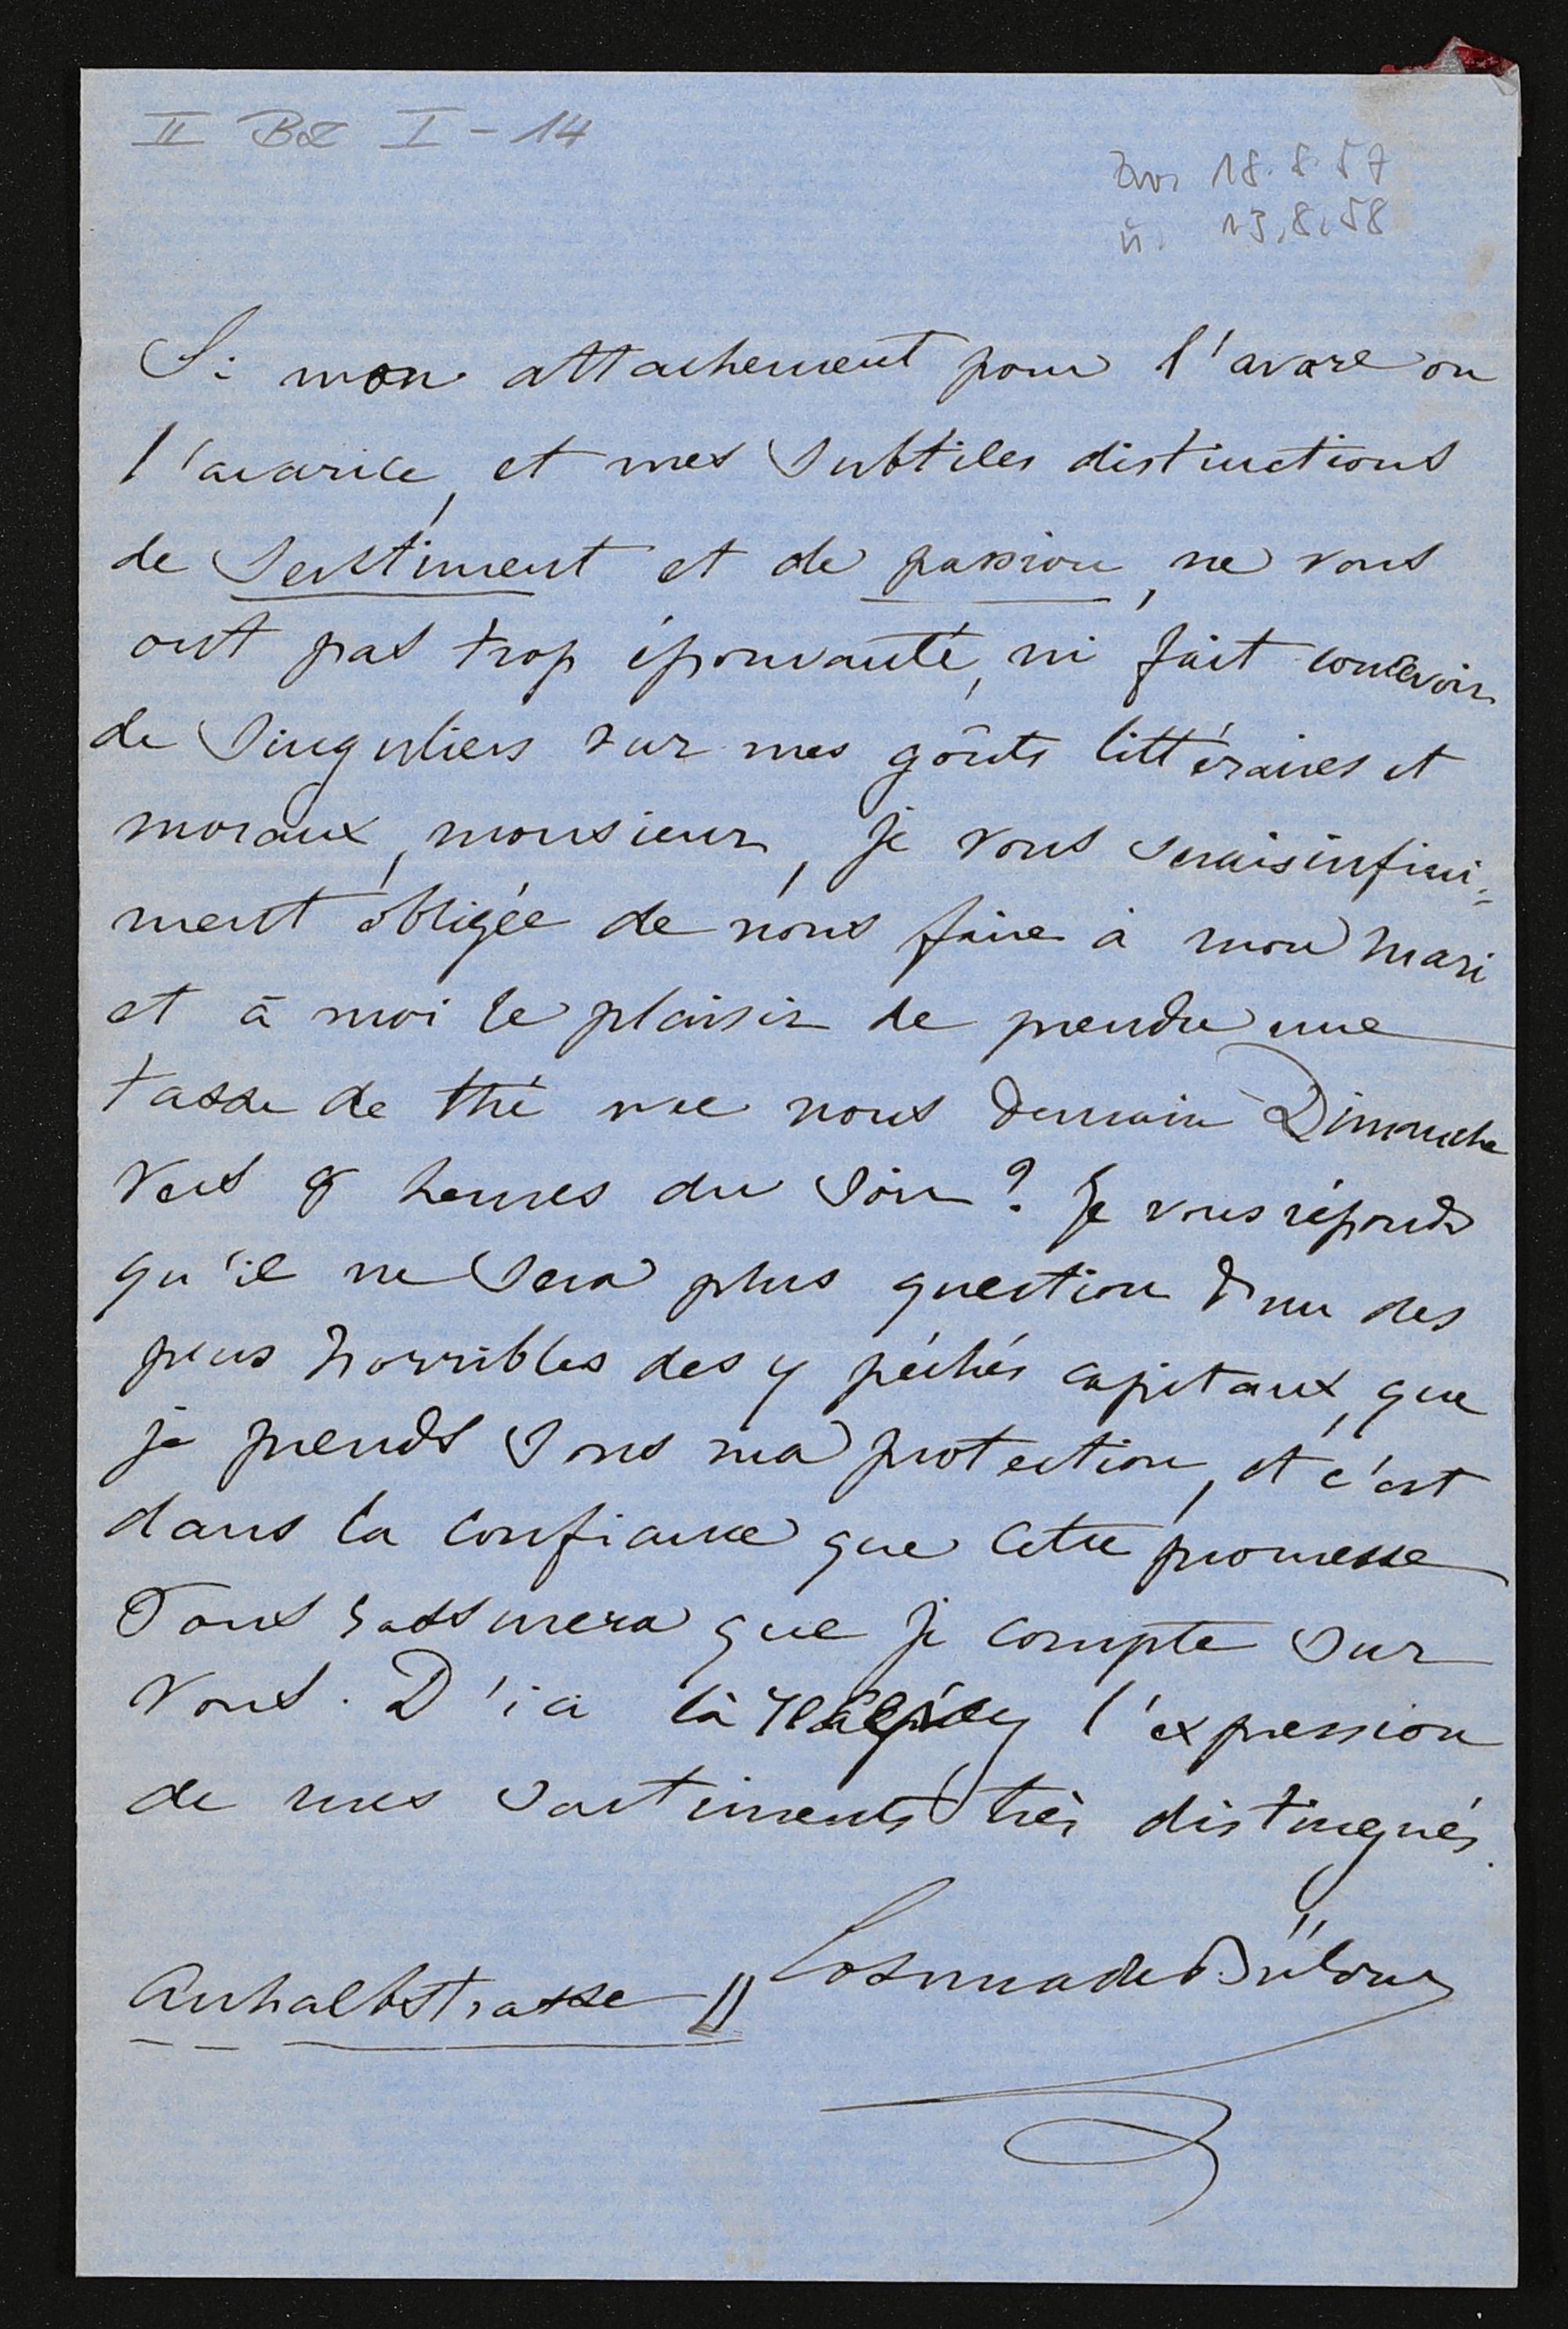 II BL I - 14
Zw. 18.8.57
u. 13.8.58
Si mon attachement pour l'avare ou
l'avarice, et mes subtiles distinctions
de sentiment et de passion, ne vous
ont pas trop épouvanté, ni fait concevoir
de singuliers sur mes goûts littéraires et
moraux, monsieur, je vous serais infini-
ment obligée de nous faire à mon mari
et à moi le plaisir de prendre une
tasse de thé avec nous demain Dimanche
vers 8 heures du soir? Je vous réponds
qu'il ne sera plus question d'un des
plus horribles des 7 péchés capitaux, que
je prends sous ma protection, et c'est
dans la confiance que cette promesse
vous rassurera que je compte sur
vous. D'ici là l'expression
de mes sentiments très distingués.
Cosima de Bülow
Anhaltstrasse 11